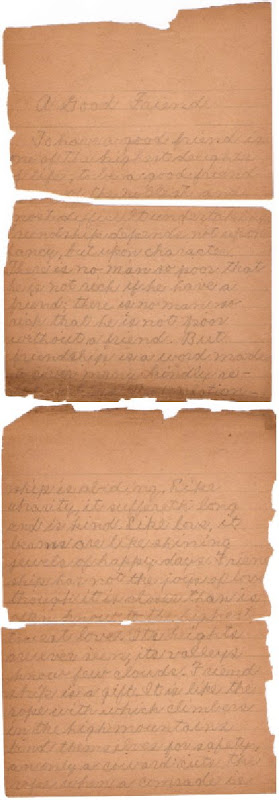 A Good Friend
To have a good friend is
one of the highest delights
of life; to be a good friend
most difficult undertakings
friendship depends not upon
fancy, but upon character.
There is no man so poor that
he is not rich if he have a
friend; there is no man so
rich that he is not poor
without a friend. But
friendship is a word made
to cover many kindly,
ship is abiding. Like
charity, it suffereth long
and is kind. Like love, it
beams are like shining
jewels of happy days. Friend
ship has not the joys of love
though it is
love. Its heights
are sun, its valleys
know few clouds. Friend
ship is a gift. It is like the
rope with which climbers
in the high mountains
bind themselves for safety,
only a coward cuts the
rope when a comrade is